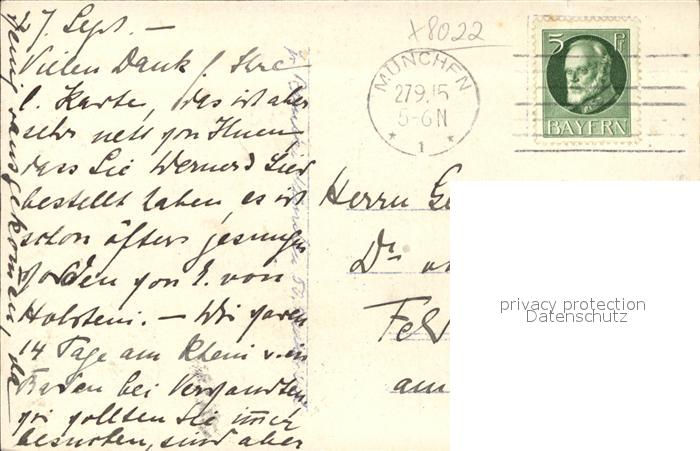 x8022
27 Sept. —
Vielen Dank f. Ihre
l. Karte, das ist aber
sehr nett von Ihnen,
dass Sie Werners Lied
bestellt haben, es ist
schon öfters gesungen
worden von E. von
Holstein. — Wir waren
14 Tage am Rhein u. in
Baden bei Verwandten
wir wollten Sie immer
besuchen, sind aber
MÜNCHEN
27.9.15
5-6 N
* 1 *
5 Pf
BAYERN
Herrn
Dr
am
privacy protection
Datenschutz